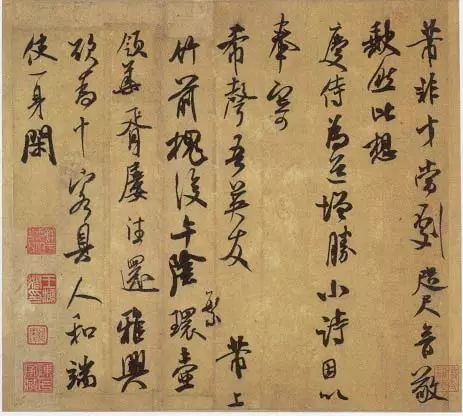 芾非才當劇咫尺音敬
缺然此想
慶侍為道增勝小詩因以
奉寄
希聲吾英友 芾上
竹前槐後午陰環壺
繁
領華胥屢往還雅興
欲為十客具人和端
使一身閑